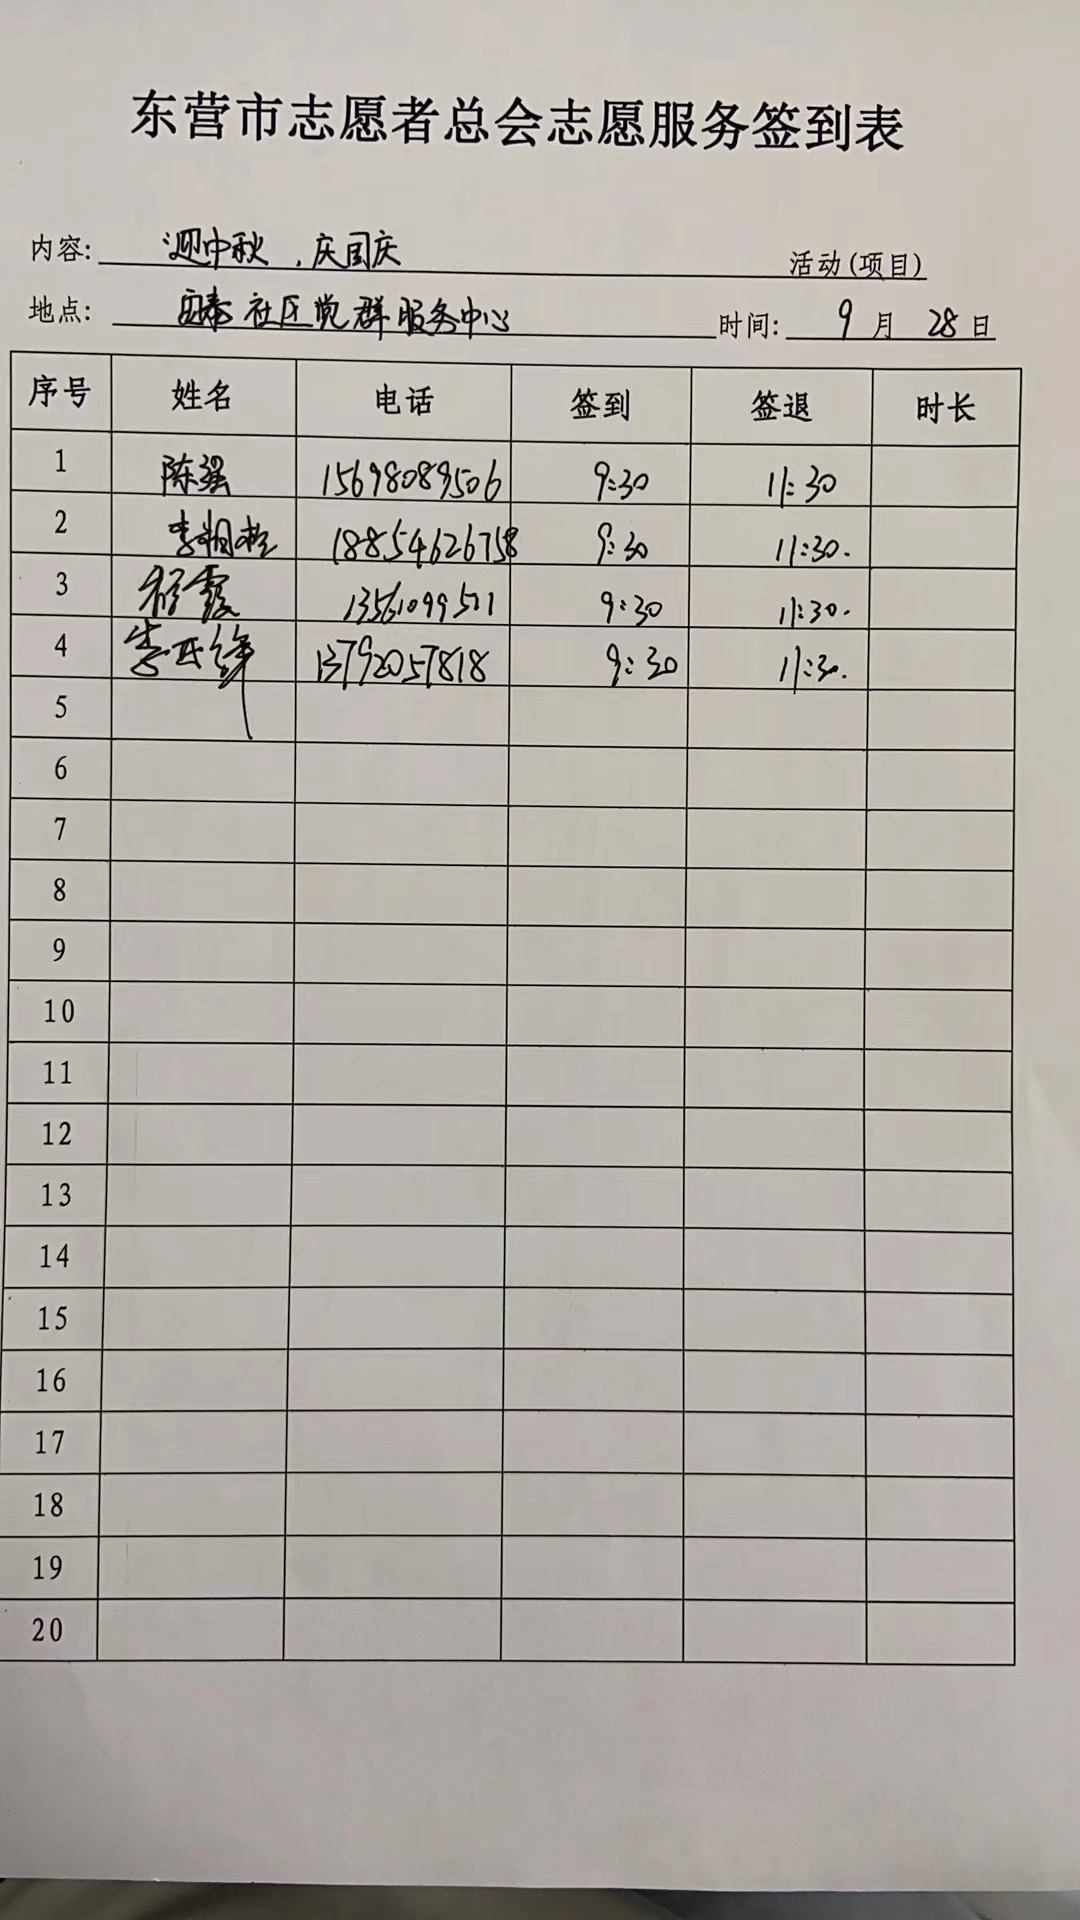 东营市志愿者总会志愿服务签到表
内容: 迎中秋,庆国庆 活动(项目)
地点: 安泰社区党群服务中心 时间: 9月28日
序号 姓名 电话 签到 签退 时长
1 陈强 15698089506 9:30 11:30
2 18854626758 9:30 11:30.
3 程霞 13561099511 9:30 11:30.
4 13792057818 9:30 11:30.
5
6
7
8
9
10
11
12
13
14
15
16
17
18
19
20